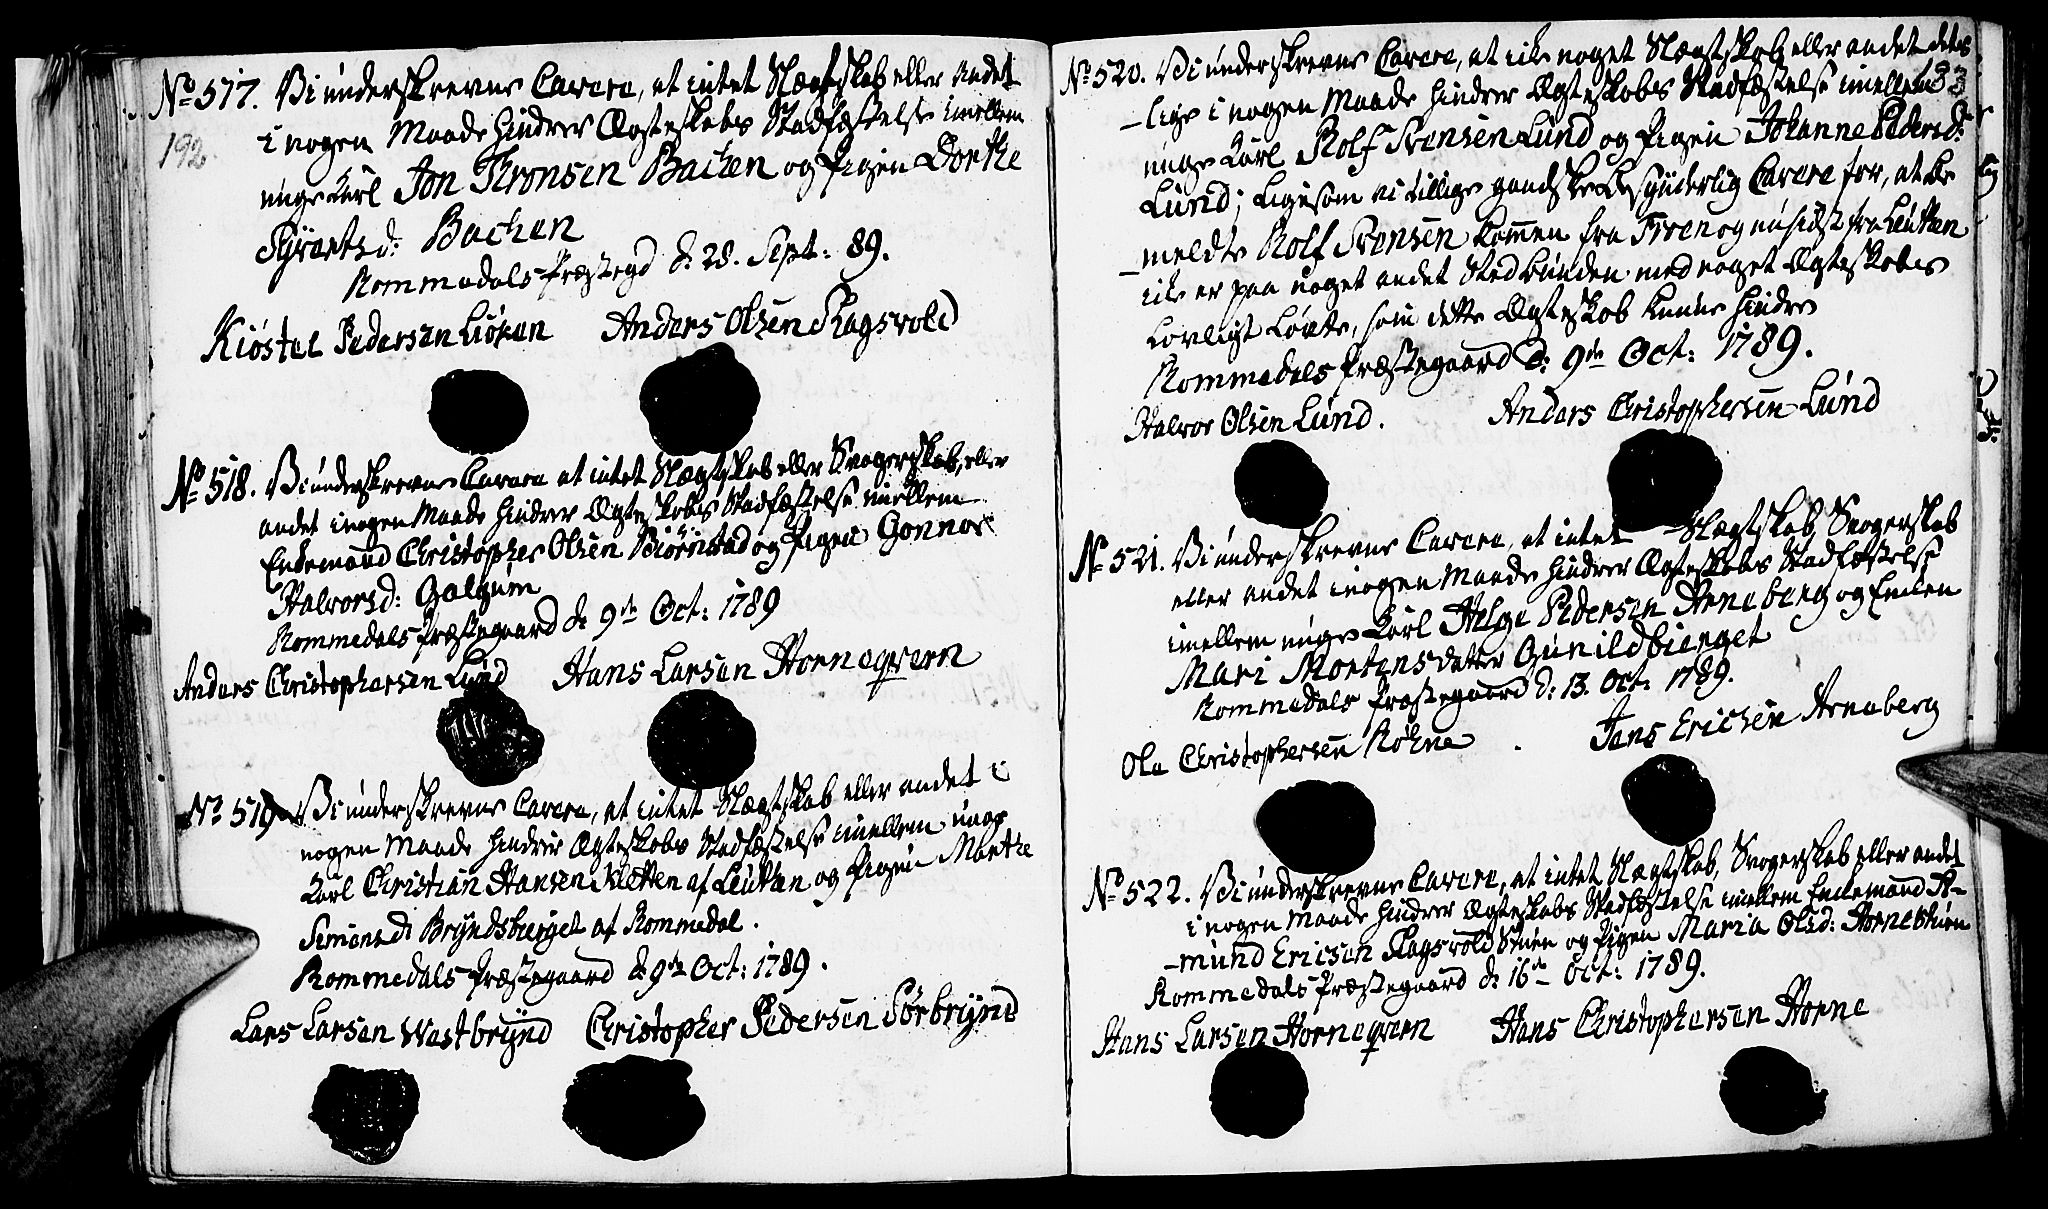 No 517. Vi underskrevne Cavere, at intet Slægtskab eller Andet
i nogen Maade hindrer Ægteskabs Stadfæstelse imellem
192.
unge Karl Jon Thronsen Bachen og Pigen Dorthe
Syvertsd: Bachen
Rommedals Præstegd d: 28. Sept: 89.
Kiøstel Pedersen Liøken Anders Olsen Skagsvold
No 518. Vi underskrevne Cavere at intet Slægtskab eller Svogerskab, eller
andet i nogen Maade hindrer Ægteskabs Stadfæstelse imellem
Enkemand Christopher Olsen Biørnstad og Pigen Gonnor
Halvorsd: Galgum
Rommedals Præstegaard d: 9de Oct: 1789
Anders Christophersen Lund Hans Larsen Horneqvern
No 519 Vi underskrevne Cavere, at intet Slægtskab eller andet i
nogen Maade hindrer Ægteskabs Stadfæstelse imellem unge
Karl Christian Hansen Kletten af Leuthen og Pigen Marthe
Simensd: Bryndsberget af Rommedal.
Rommedals Præstegaard d: 9de Oct: 1789.
Lars Larsen Westbrynd Christopher Pedersen Sørbrynd
No 520. Vi underskrevne Cavere, at ike noget Slægtskab eller andet dets
193
-lige i nogen Maade hindrer Ægteskabs Stadfæstelse imellem
unge Karl Rolf Svensen Lund og Pigen Johanne Pedersd:
Lund; Ligesom vi tillige gandske Besynderlig Cavere for, at be
-meldte Rolf Svensen kommen fra Tron og nu sidst fra Leuthen
ike er paa noget andet Sted bunden med noget Ægteskabs
Lovligt Løvte, som dette Ægteskab kunne hindre
Rommedals Præstegaard d: 9de Oct: 1789.
Halvor Olsen Lund. Anders Christophersen Lund
No 521. Vi underskrevne Cavere, at intet Slægtskab, Svogerskab
eller andet i nogen Maade hindrer Ægteskabs Stadfæstelse
imellem unge Karl Helge Pedersen Arneberg og Enken
Mari Mortensdatter Gunildbierget
Rommedals Præstegaard d: 13. Oct: 1789.
Ole Christophersen Røhne. Jens Erichsen Arneberg
No 522. Vi underskrevne Cavere, at intet Slægtskab, Svogerskab eller andet
i nogen Maade hindrer Ægteskabs Stadfæstelse imellem Enkemand A-
-mund Ericsen Skagsvold Stuen og Pigen Maria Olsd: Hornestuen
Rommedals Præstegaard d: 16de Oct: 1789.
Hans Larsen Horneqvern Hans Christophersen Horne